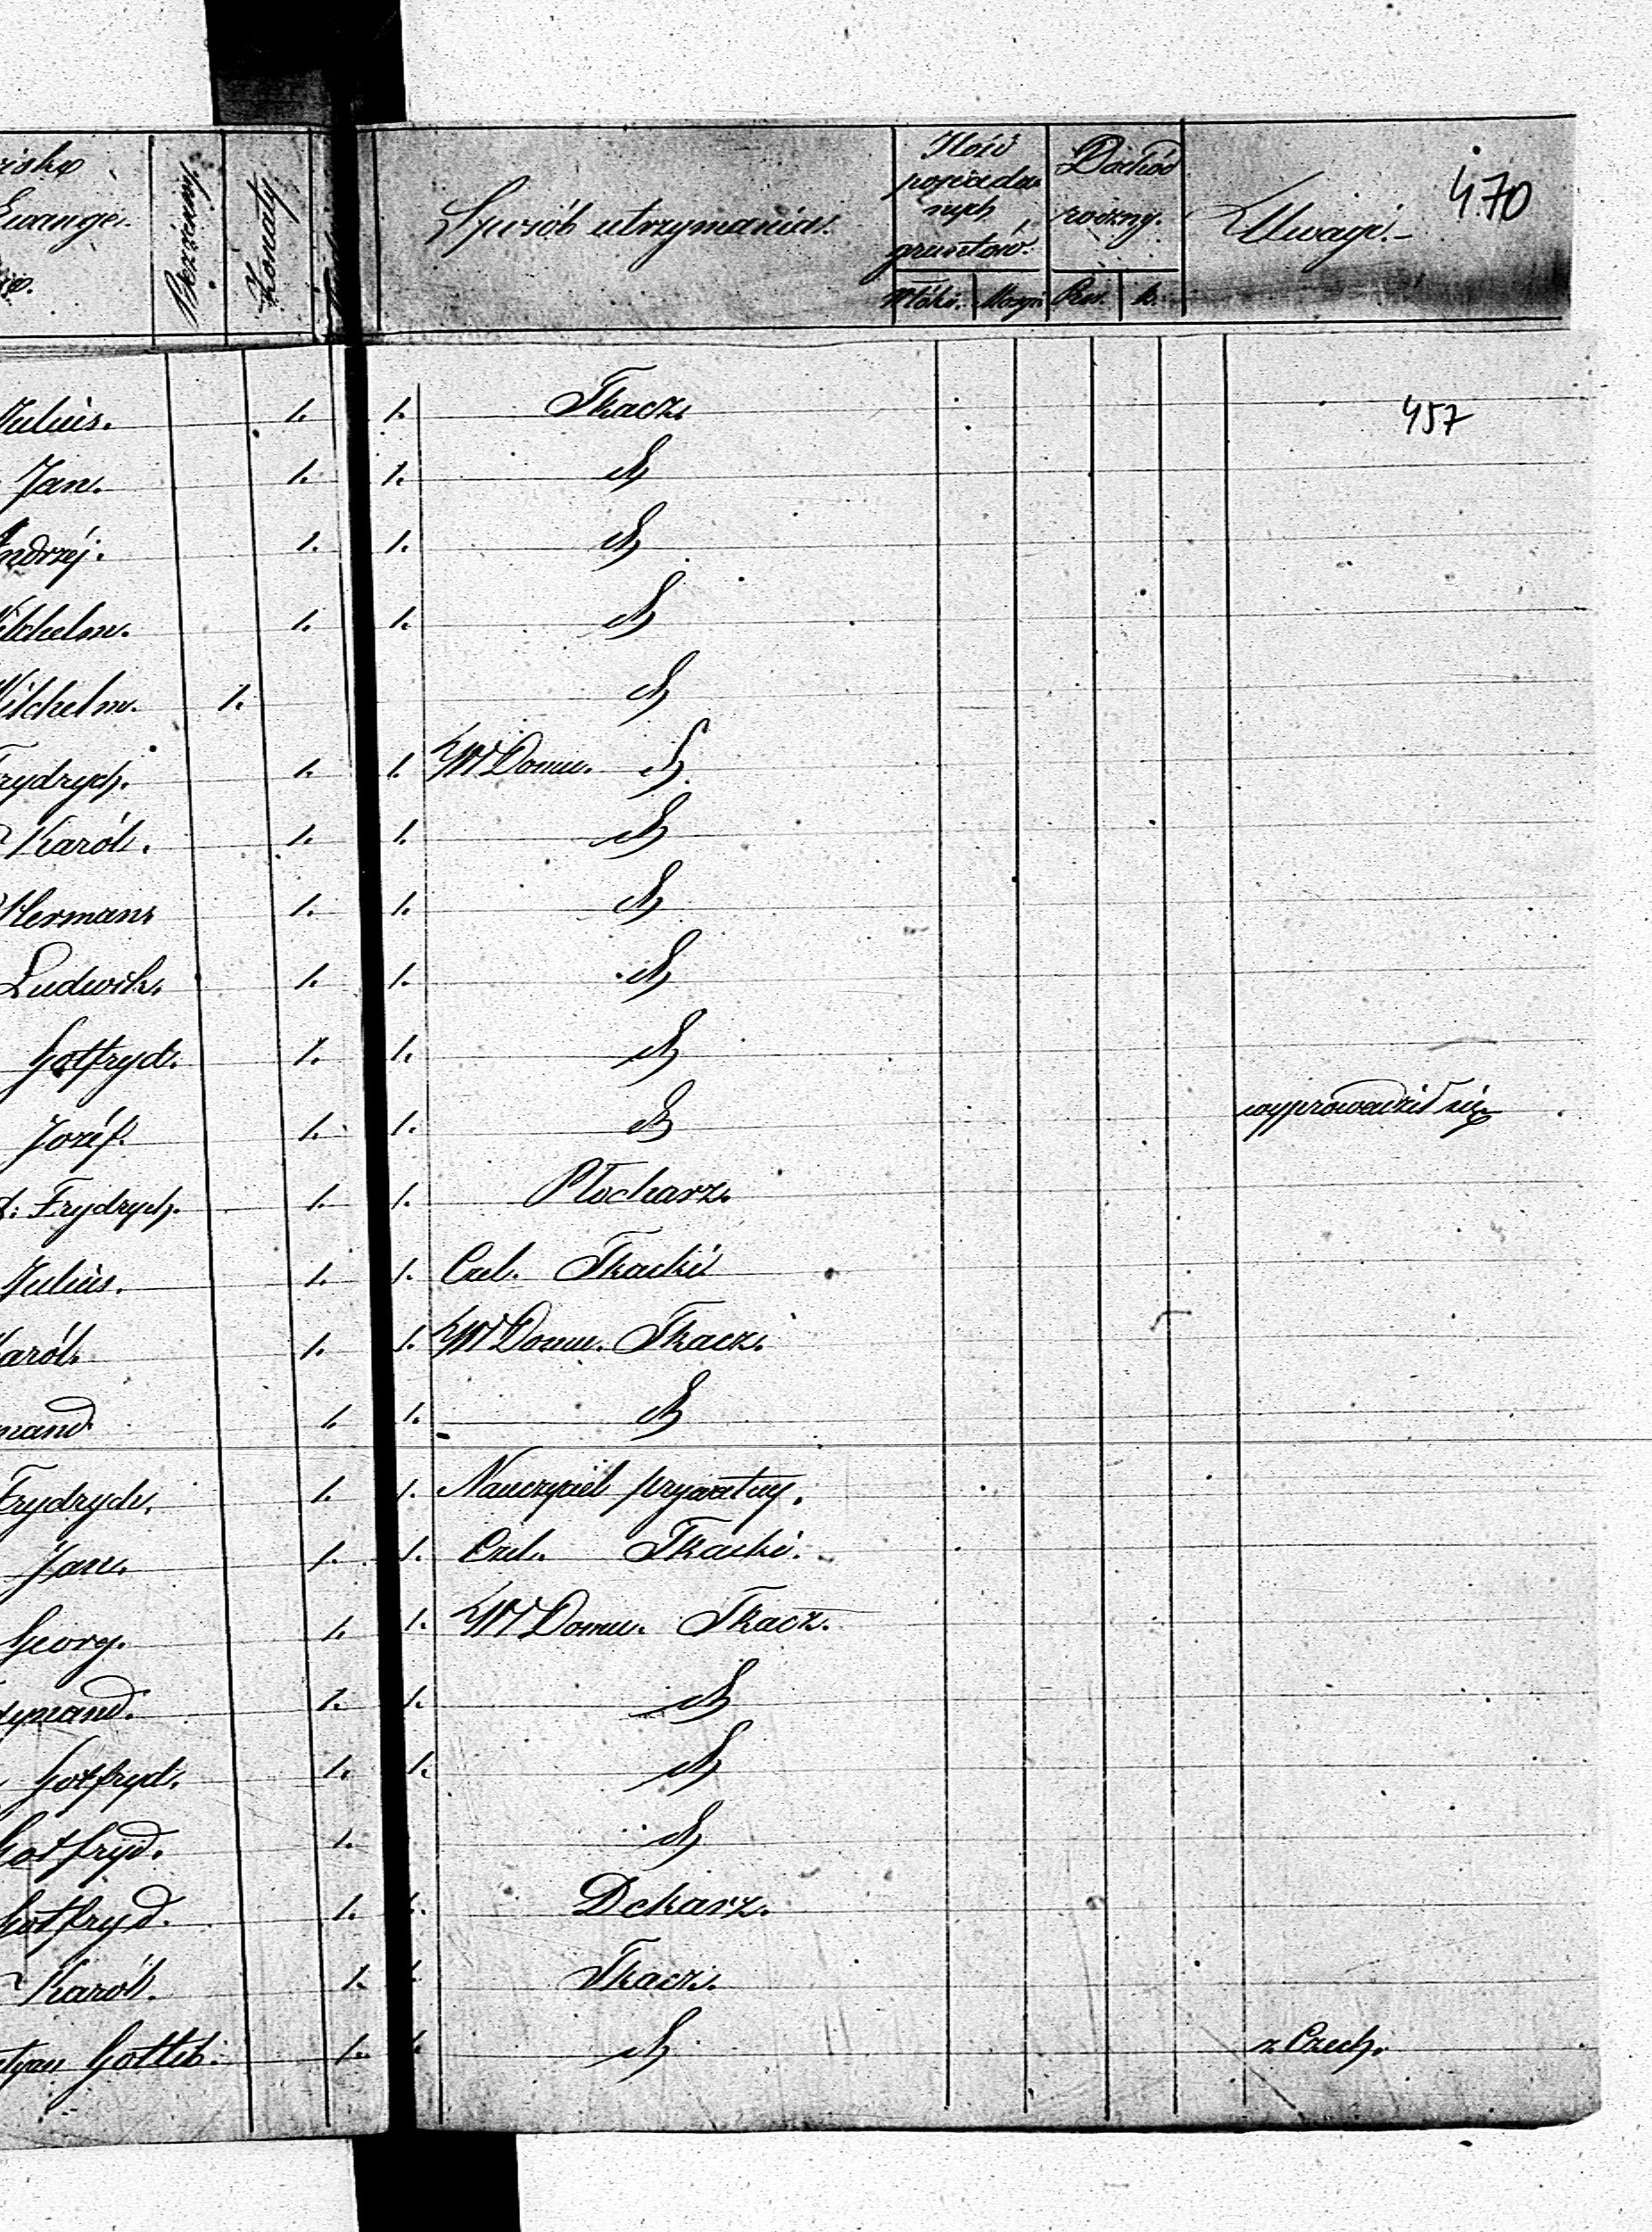 Ewange.
Bezżenny.
Żonaty
Sposób utrzymania.
Ilość
posiada
nych
gruntów.
Dochód
roczny.
Uwagi.
470
Włók. Morgi Rsr. k.
Julius. 1. 1. Tkacz. 457
Jan. 1. 1. d
Andrzéj. 1. 1. d
Wilchelm. 1. 1. d
Wilchelm. 1. d
Frydrych. 1. 1. W Domu. d
Karól. 1. 1. d
Herman 1. 1. d
Ludwik 1. 1. d
Gotfryd. 1. 1. d
Jozéf. 1. 1. d wyprowadził się
Frydrych. 1. 1. Płocharz.
Julius. 1. 1. Czel. Tkacki
Karól. 1. 1. W Domu. Tkacz.
nand 1. 1. d
Frydrych. 1. 1. Nauczyciel prywatny.
Jan. 1. 1. Czel. Tkacki.
Georg. 1. 1. W Domu. Tkacz.
dynand. 1. 1. d
Gotfryd. 1. 1. d
Gotfryd. 1. d
Gotfryd. 1. 1. Dekarz.
Karól. 1. 1. Tkacz.
Gottlib. 1. 1. d z Czech.